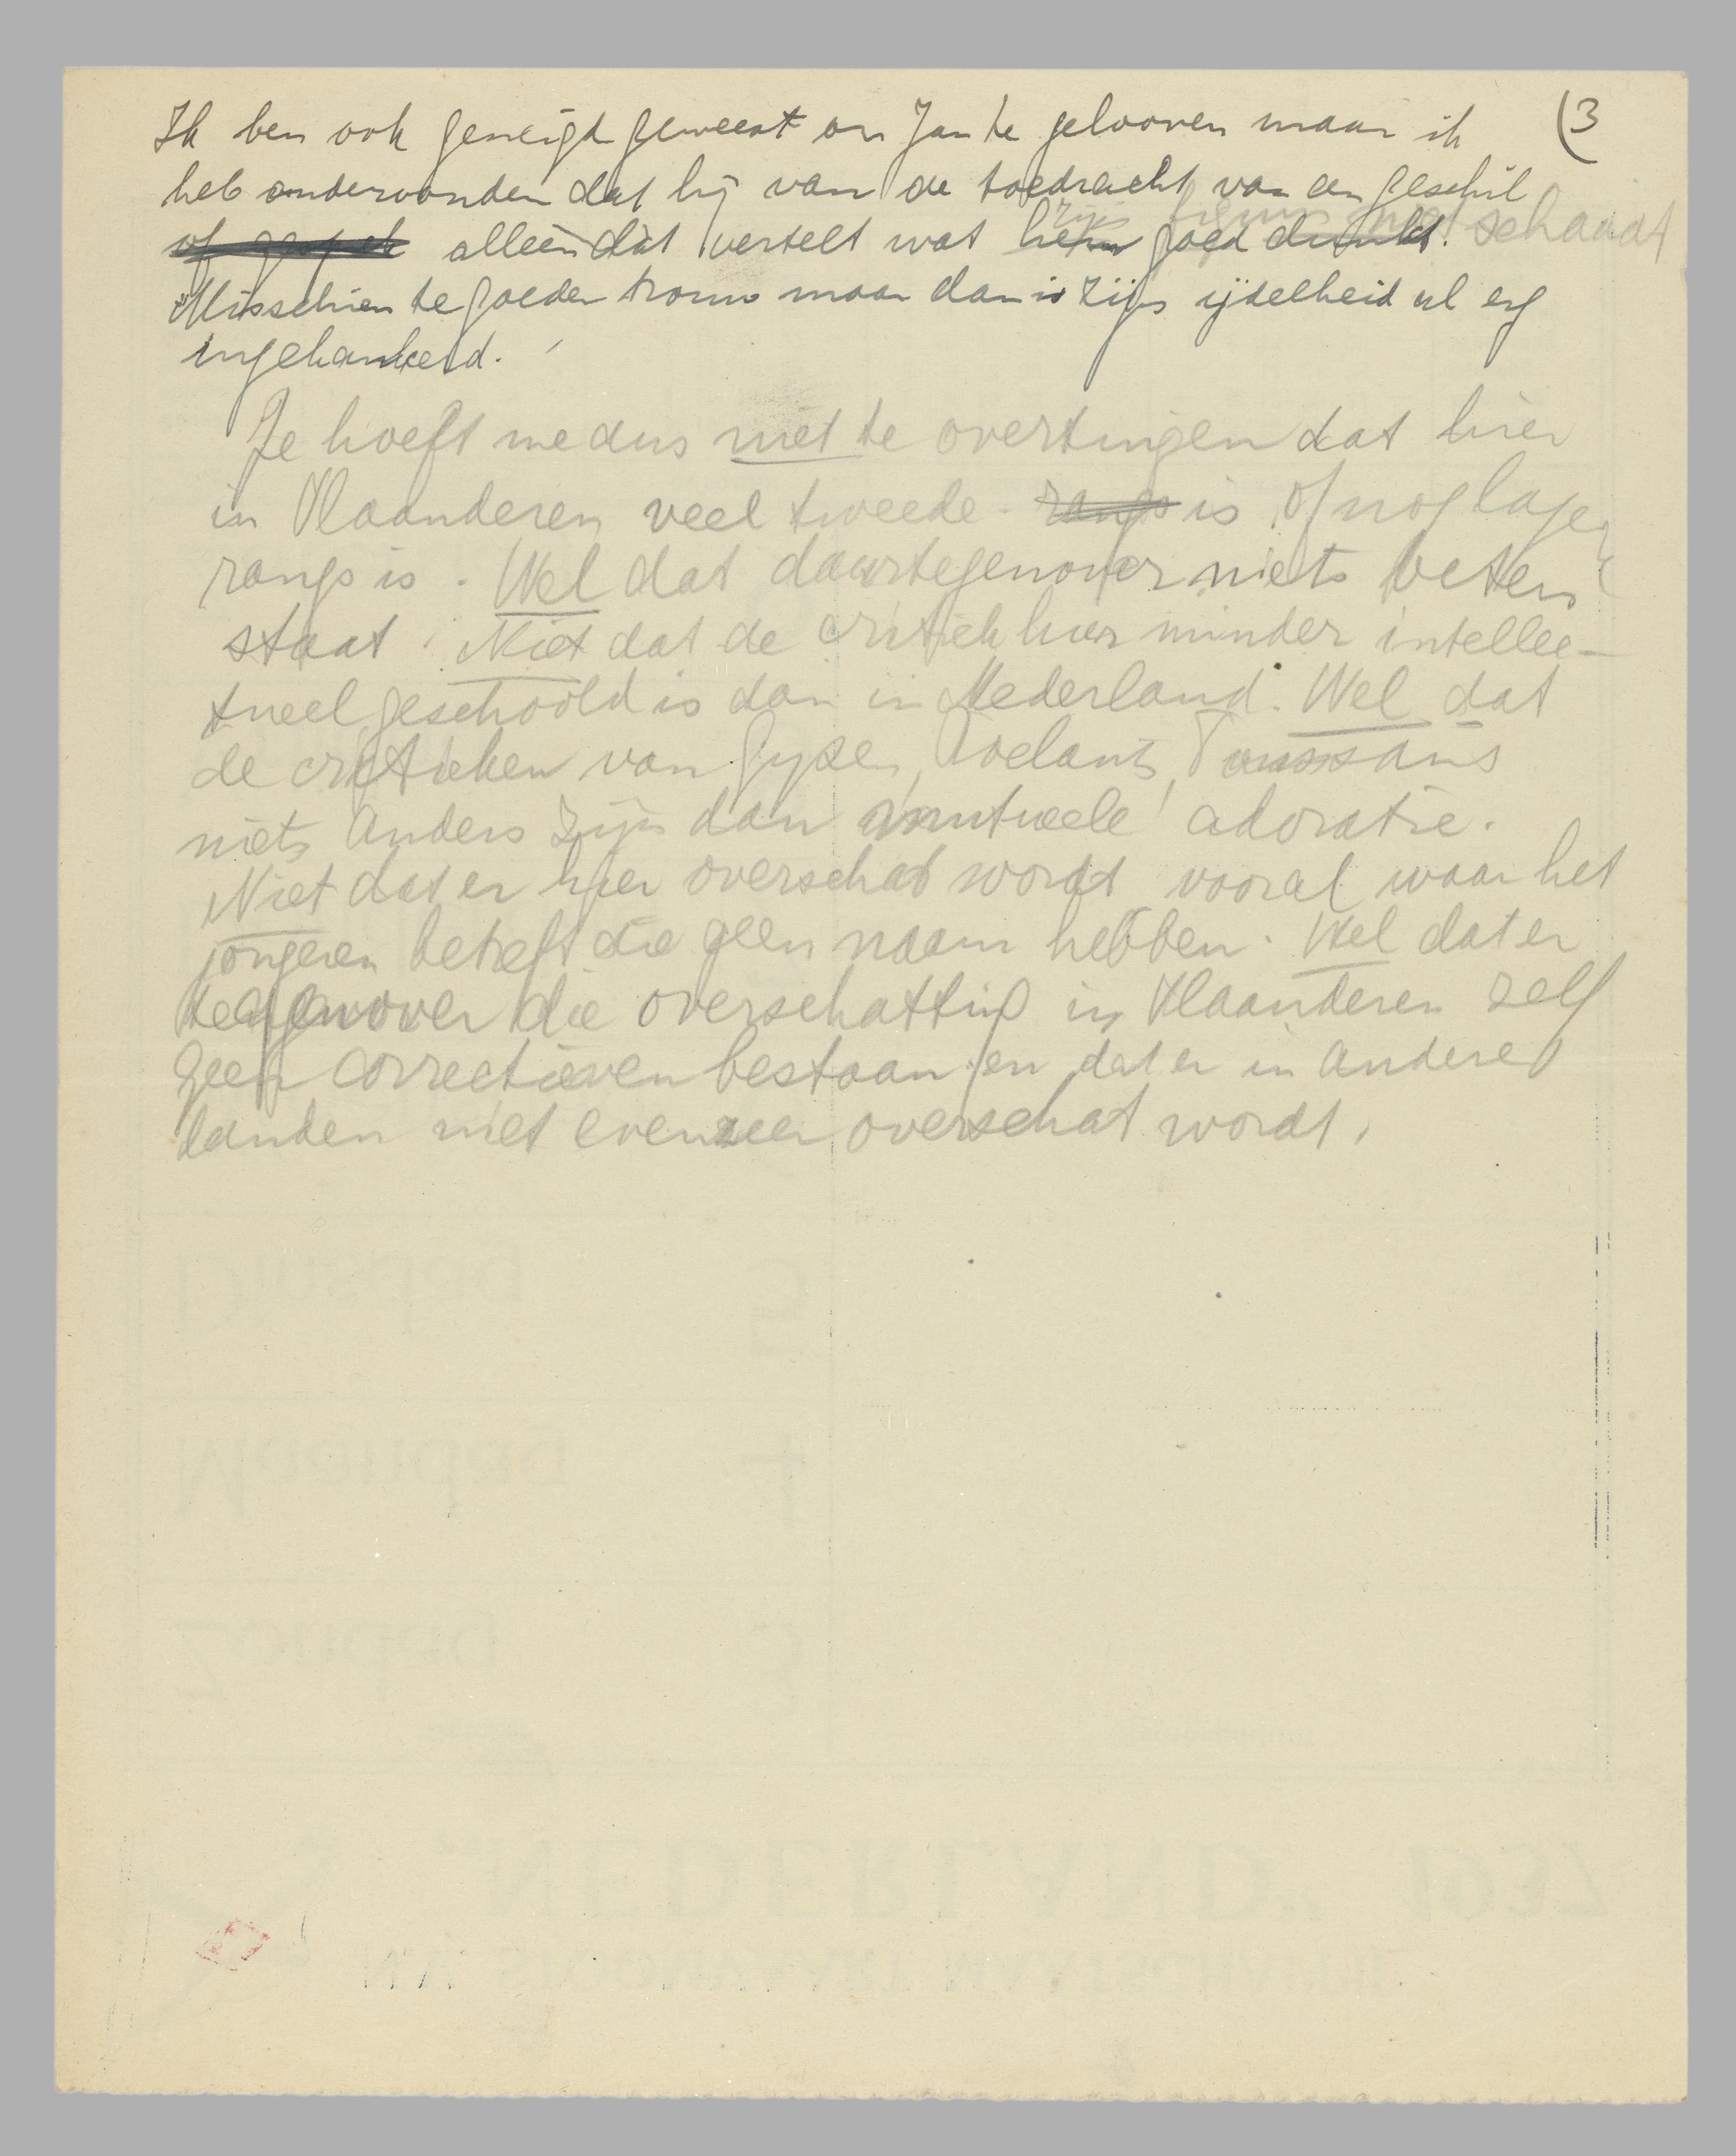 (3
Ik ben ook geneigd geweest om Jan te gelooven maar ik
heb ondervonden dat hij van de toedracht van een geschil
zijn niet schaadt
alléén dàt vertelt wat hem goed dunkt.
Misschien te goeder trouw maar dan is zijn ijdelheid al erg
ingekankerd.
Je hoeft me dus niet te overtuigen dat hier
in Vlaanderen veel tweede - rangs is of nog lager
rangs is. Wel dat daartegenover niets beters
staat. Niet dat de critiek hier minder intellec-
tueel geschoold is dan in Nederland. Wel dat
de critieken van Gysen, Roelants, Toussains
niets anders zijn dan mutueele adoratie.
Niet dat er hier overschat wordt vooral waar het
jongeren betreft die geen naam hebben. Wel dat er
tegenover die overschatting in Vlaanderen zelf
geen correctieven bestaan en dat er in andere
landen niet evenzeer overschat wordt.